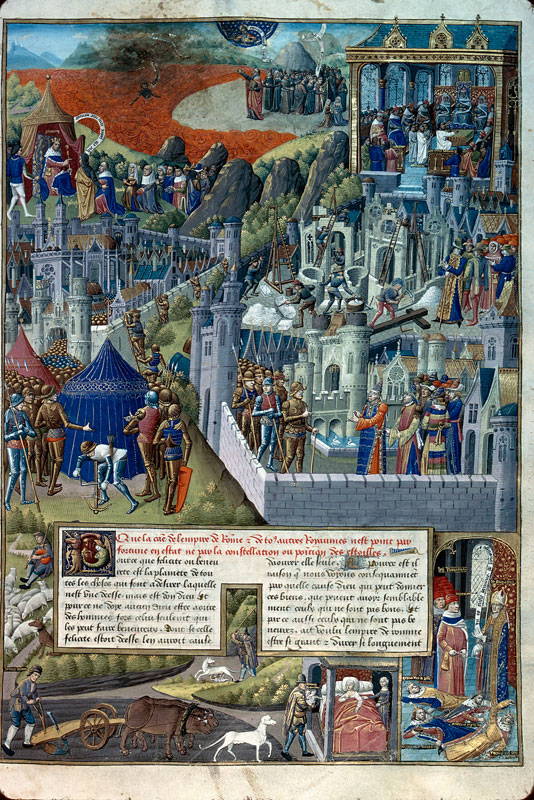 Que la cause de lempire de Rome & de tous autres Royaumes nest point par
fortune en estat ne par la constellation ou position des estoilles.
Pource que felicite ou beneu
rete est la planete de tou
tes les choses qui font a desirer laquelle
nest une deesse. mais est don dieu. Et
pource ne doye aucun dieu estre aoure
des hommes fors celui seulement qui
les peut faire beneurez. Dont se celle
felicite estoit deesse len auroit cause
daourer elle seule. Pource est il
raison que nous voyons consequamment
par quelle cause dieu qui peut donner
ces biens. que peuent avoir semblable
ment ceulx qui ne sont pas bons. Et
par ce aussi ceulx qui ne sont pas be
neurez. ait voulu lempire de romme
estre si grant & durer si longuement